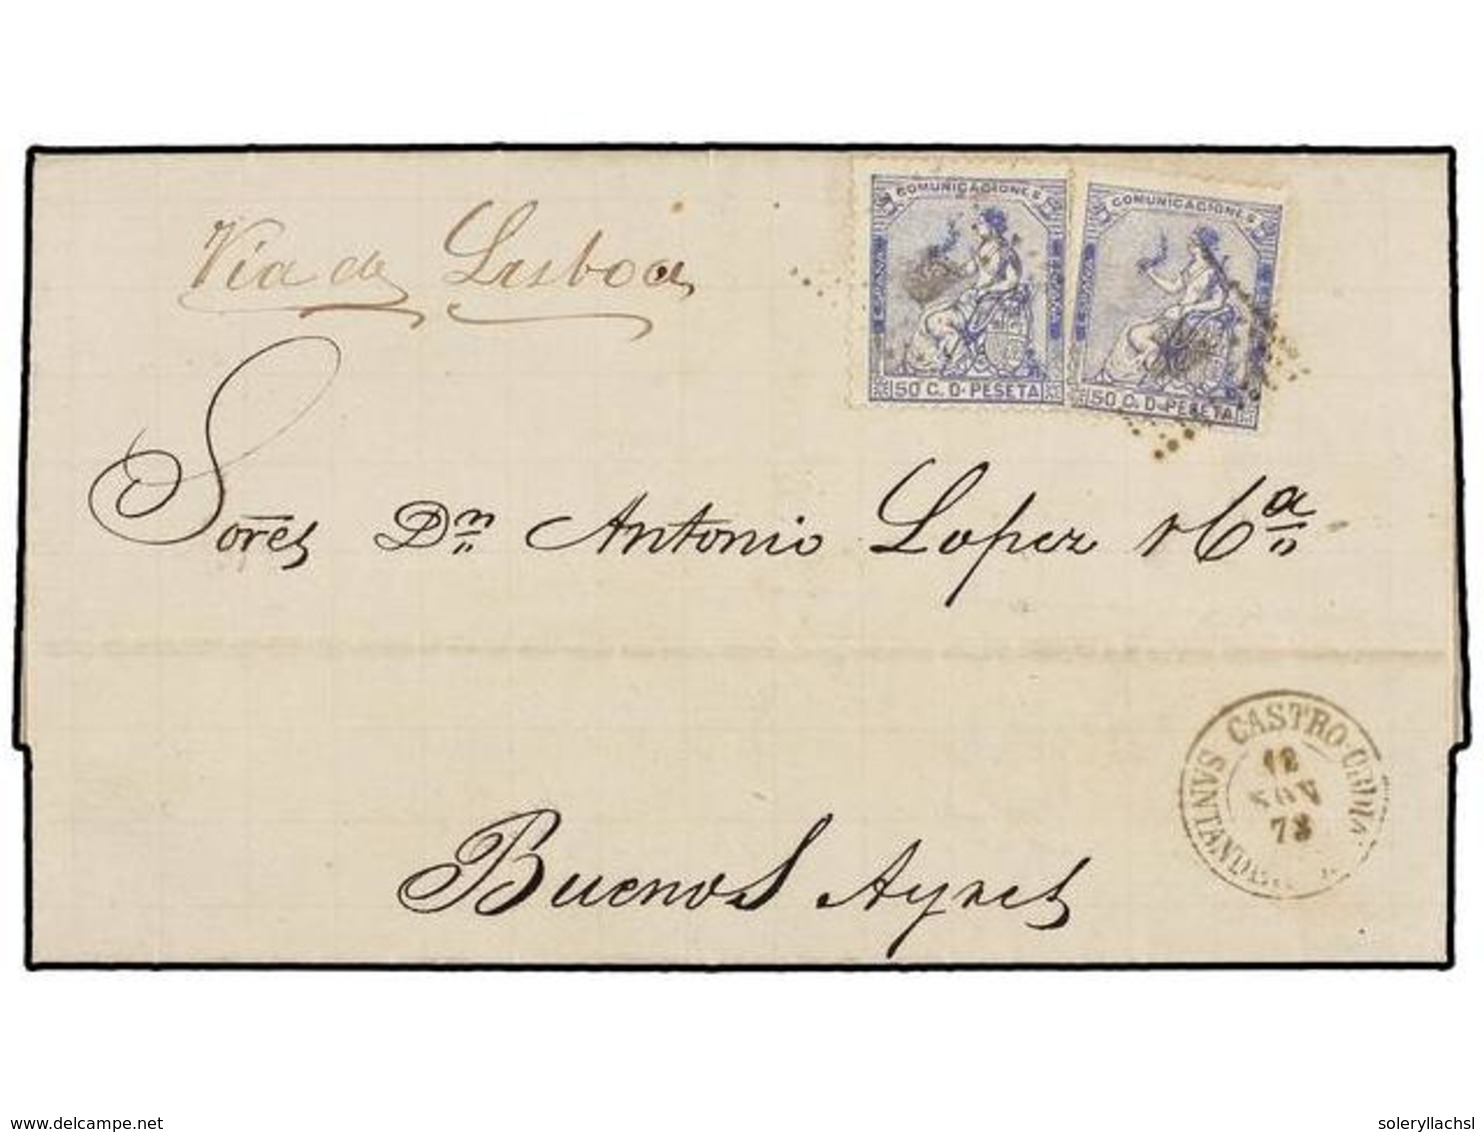 Via de Lisboa
COMUNICACIONES
ESPAÑA
50 C. D. PESETA
COMUNICACIONES
ESPAÑA
50 C. D. PESETA
Sores Dn Antonio Lopez y Ca
Buenos Ayres
CASTRO-URDIA
12
NOV
73
SANTANDER
www.delcampe.net
soleryllachsl